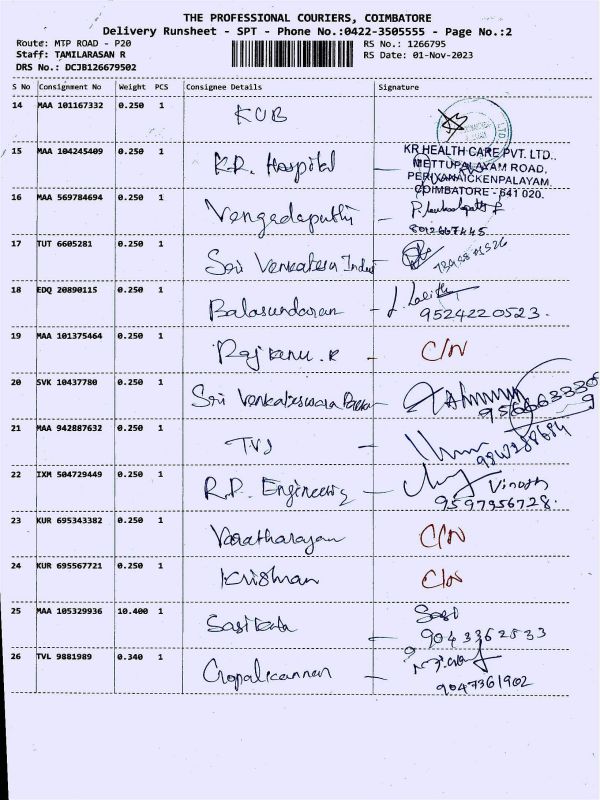 THE PROFESSIONAL COURIERS, COIMBATORE
Delivery Runsheet - SPT - Phone No.:0422-3505555 - Page No.:2
Route: MTP ROAD - P20 RS No.: 1266795
Staff: TAMILARASAN R RS Date: 01-Nov-2023
DRS No.: DCJB126679502
S No Consignment No Weight PCS Consignee Details Signature
14 MAA 101167332 0.250 1 KUB
15 MAA 104245409 0.250 1 K.R. Hospital -
KR HEALTH CARE PVT. LTD.,
METTUPALAYAM ROAD,
PERIYANAICKENPALAYAM,
COIMBATORE - 641 020.
16 MAA 569784694 0.250 1 Vengadapathi -
8012667445
17 TUT 6605281 0.250 1 Sri Venkatesa Indus
18 EDQ 20890115 0.250 1 Balasundaram - J. Lalitha
9524220523.
19 MAA 101375464 0.250 1 Rajkanu.R - C/N
20 SVK 10437780 0.250 1 Sri Venkateswara
21 MAA 942887632 0.250 1 TVS -
22 IXM 504729449 0.250 1 R.P. Engineering - Vinoth
9597956728.
23 KUR 695343382 0.250 1 Varatharajan C/N
24 KUR 695567721 0.250 1 Krishnan C/N
25 MAA 105329936 10.400 1 Sasikala - Sasi
9043362533
26 TVL 9881989 0.340 1 Gopalkannan -
9047361902